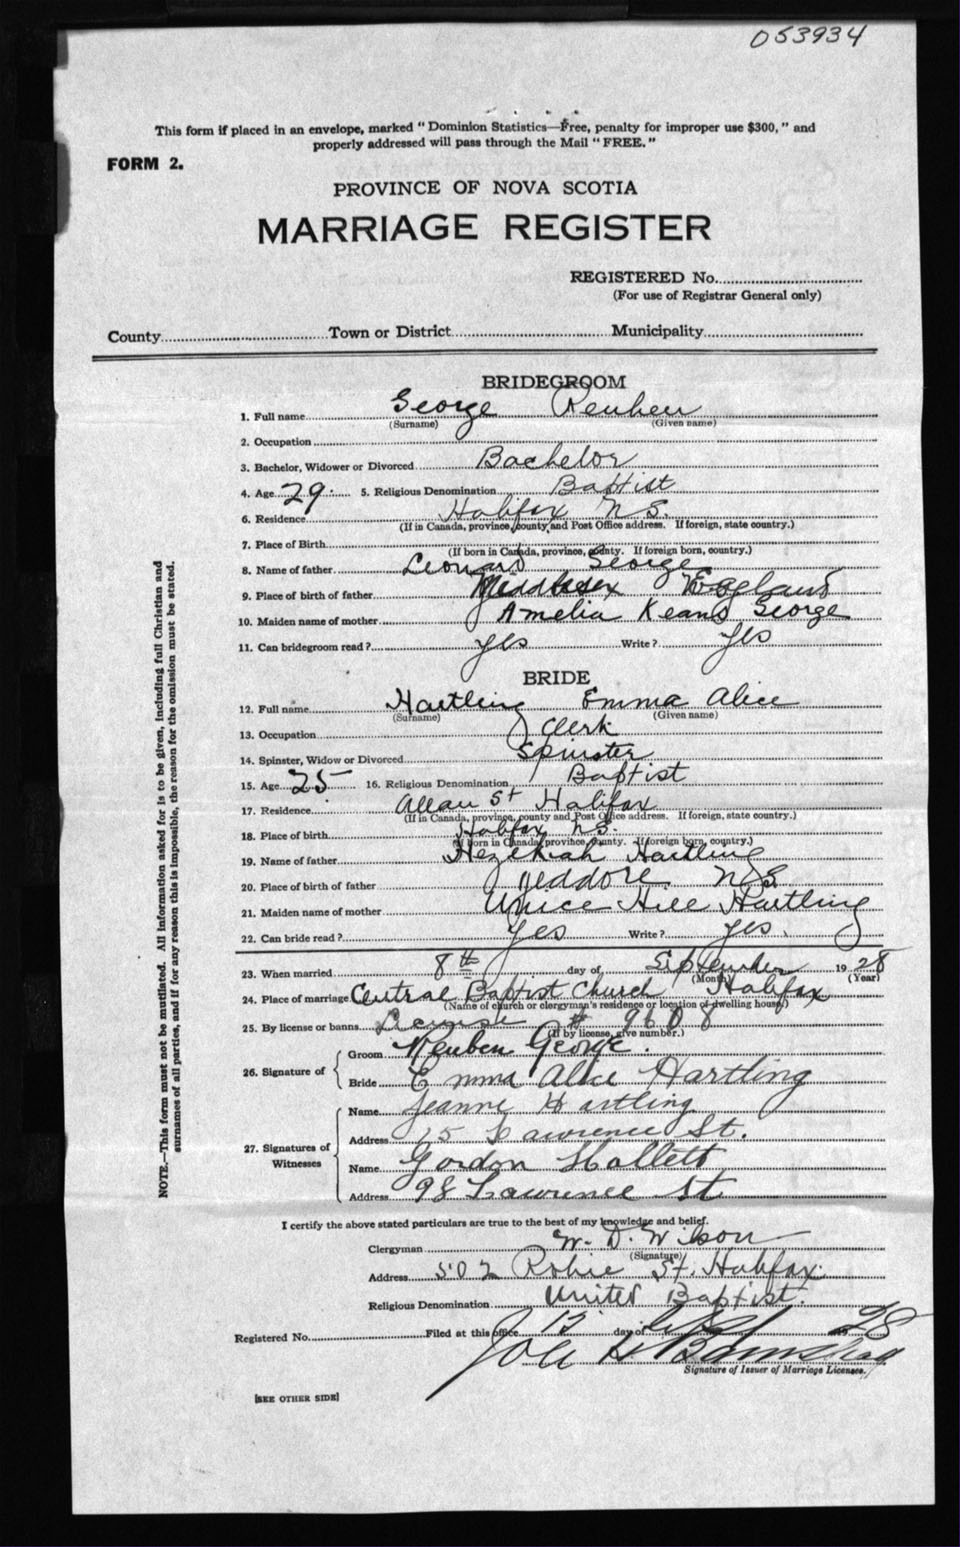 053934
This form if placed in an envelope, marked "Dominion Statistics—Free, penalty for improper use $300," and
properly addressed will pass through the Mail "FREE."
FORM 2.
PROVINCE OF NOVA SCOTIA
MARRIAGE REGISTER
REGISTERED No.
(For use of Registrar General only)
County Town or District Municipality
NOTE.—This form must not be mutilated. All information asked for is to be given, including full Christian and
surnames of all parties, and if for any reason this is impossible, the reason for the omission must be stated.
BRIDEGROOM
1. Full name George Reuben
(Surname) (Given name)
2. Occupation
3. Bachelor, Widower or Divorced Bachelor
4. Age 29 5. Religious Denomination Baptist
6. Residence Halifax N.S.
(If in Canada, province, county and Post Office address. If foreign, state country.)
7. Place of Birth
(If born in Canada, province, county. If foreign born, country.)
8. Name of father Leonard George
9. Place of birth of father Middlesex England
10. Maiden name of mother Amelia Keans George
11. Can bridegroom read? yes Write? yes
BRIDE
12. Full name Hartling Emma Alice
(Surname) (Given name)
13. Occupation Clerk
14. Spinster, Widow or Divorced Spinster
15. Age 25 16. Religious Denomination Baptist
17. Residence Allan St Halifax
(If in Canada, province, county and Post Office address. If foreign, state country.)
18. Place of birth Halifax N.S.
(If born in Canada, province, county. If foreign born, country.)
19. Name of father Hezekiah Hartling
20. Place of birth of father Jeddore N.S.
21. Maiden name of mother Unice Hill Hartling
22. Can bride read? Yes Write? yes.
23. When married 8th day of September 1928
(Month) (Year)
24. Place of marriage Central Baptist Church Halifax
(Name of church or clergyman's residence or location of dwelling house)
25. By license or banns License # 9608
(If by license, give number.)
26. Signature of
Groom Reuben George.
Bride Emma Alice Hartling
27. Signatures of
Witnesses
Name Jeanne Hartling
Address 75 Lawrence St.
Name Gordon Hallett
Address 98 Lawrence St
I certify the above stated particulars are true to the best of my knowledge and belief.
Clergyman W. D. Wilson
(Signature)
Address 502 Robie St. Halifax.
Religious Denomination United Baptist.
Registered No. Filed at this office 13 day of 1928
Signature of Issuer of Marriage Licenses.
[SEE OTHER SIDE]